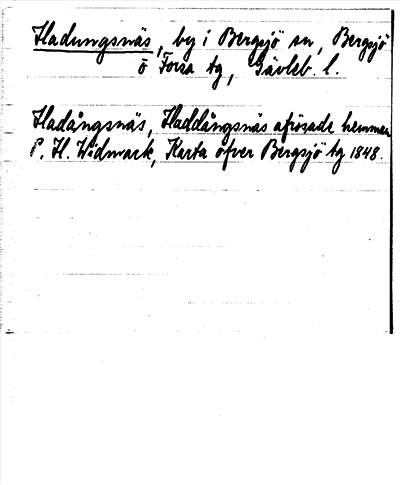 Hadungsnäs, by i Bergsjö sn, Bergsjö
o Forsa tg, Gävleb. l.
Hadångsnäs, Haddångsnäs afrösade hemman
P. H. Widmark, Karta öfver Bergsjö tg 1848.